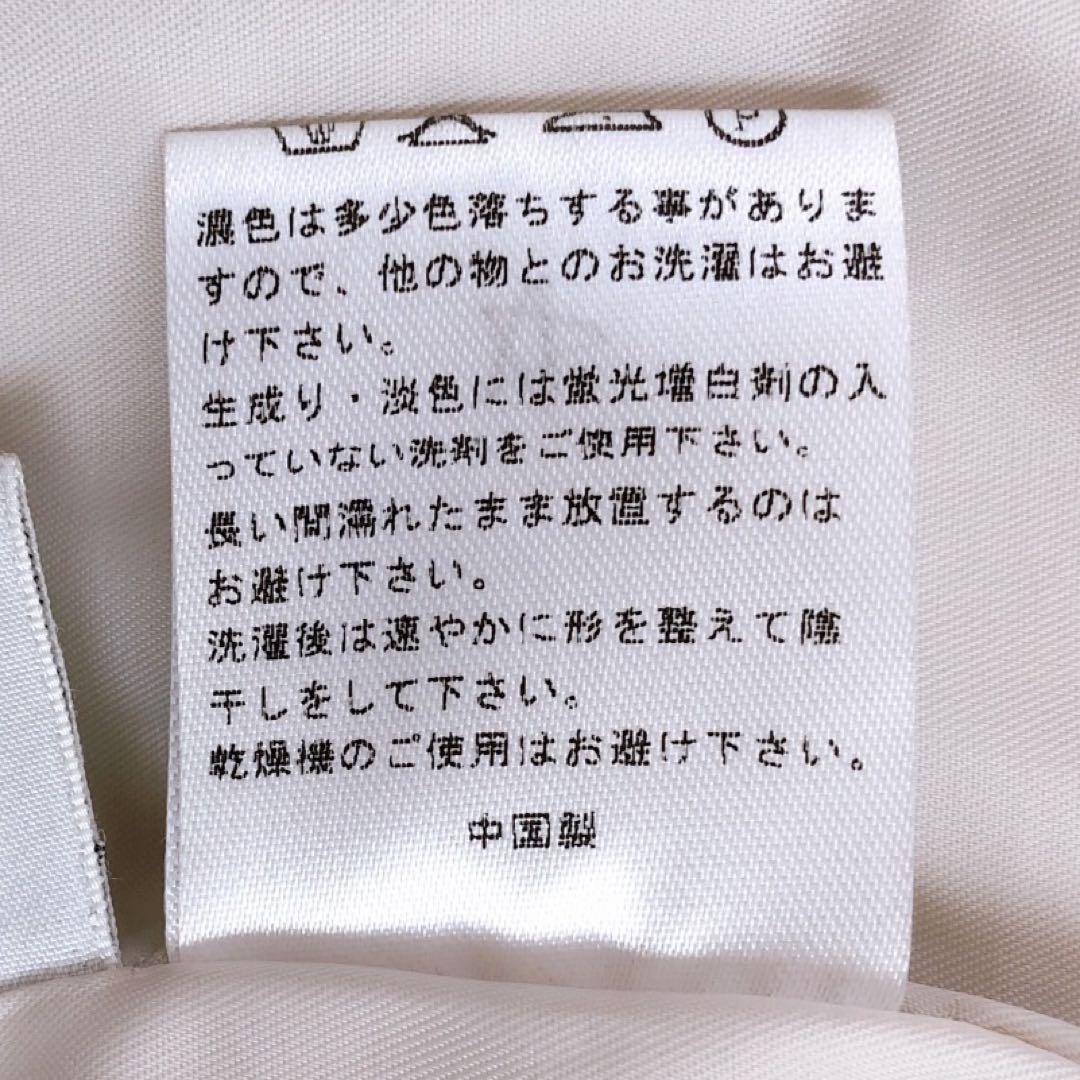 濃色は多少色落ちする事がありま
すので、他の物とのお洗濯はお避
け下さい。
生成り・淡色には蛍光増白剤の入
っていない洗剤をご使用下さい。
長い間濡れたまま放置するのは
お避け下さい。
洗濯後は速やかに形を整えて陰
干しをして下さい。
乾燥機のご使用はお避け下さい。
中国製